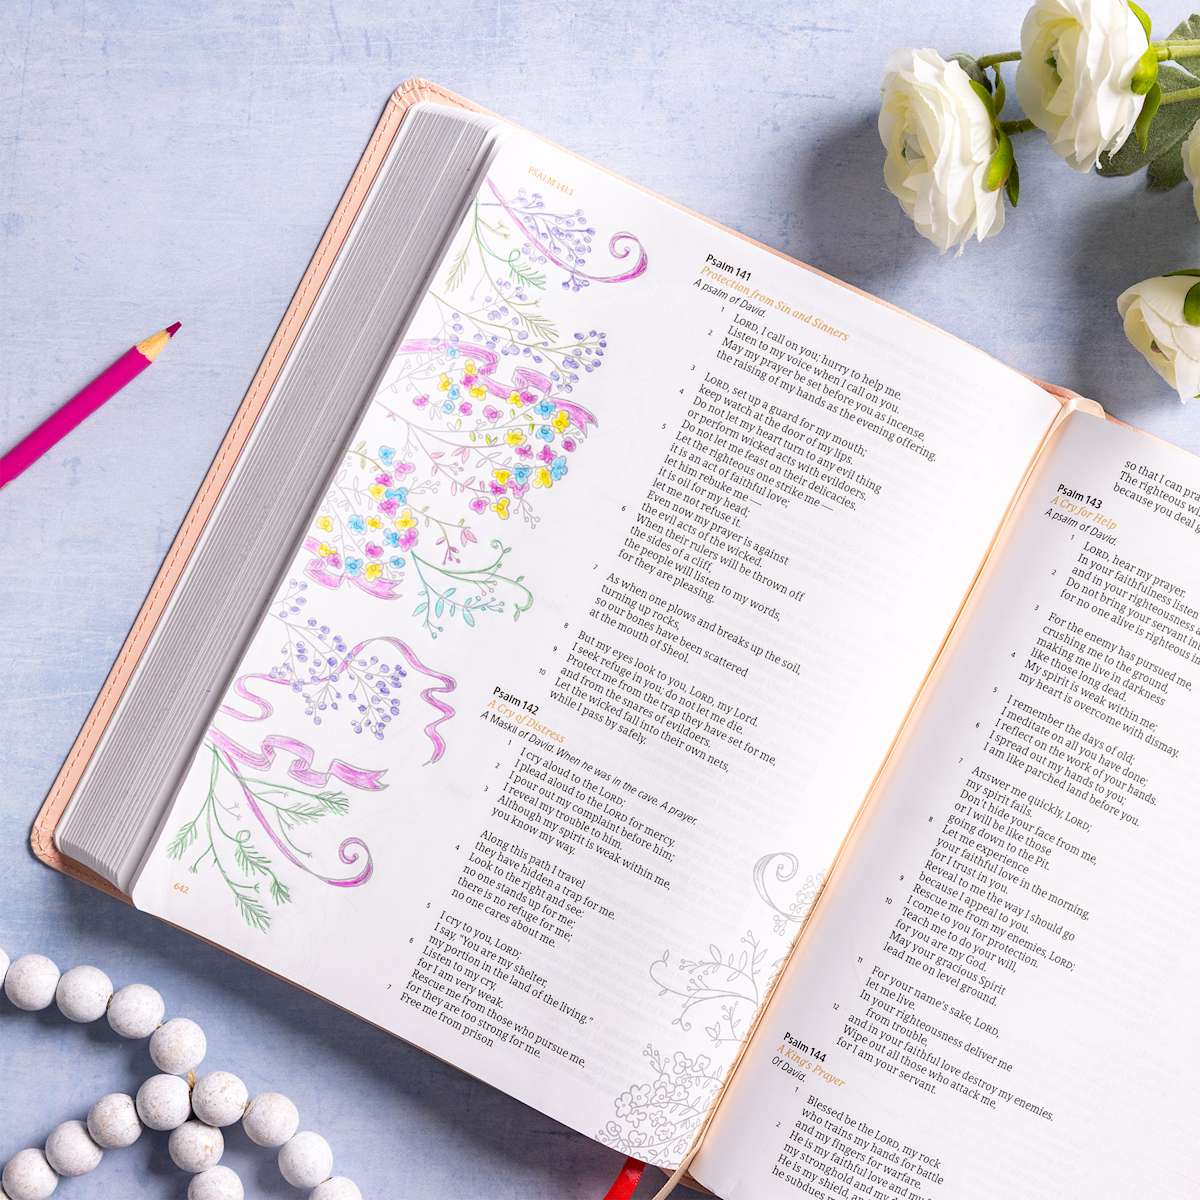 PSALM 141:1
Psalm 141
Protection from Sin and Sinners
A psalm of David.
1 LORD, I call on you; hurry to help me.
Listen to my voice when I call on you.
2 May my prayer be set before you as incense,
the raising of my hands as the evening offering.
3 LORD, set up a guard for my mouth;
keep watch at the door of my lips.
4 Do not let my heart turn to any evil thing
or perform wicked acts with evildoers.
Do not let me feast on their delicacies.
5 Let the righteous one strike me —
it is an act of faithful love;
let him rebuke me —
it is oil for my head;
let me not refuse it.
Even now my prayer is against
the evil acts of the wicked.
6 When their rulers will be thrown off
the sides of a cliff,
the people will listen to my words,
for they are pleasing.
7 As when one plows and breaks up the soil,
turning up rocks,
so our bones have been scattered
at the mouth of Sheol.
8 But my eyes look to you, LORD, my Lord.
I seek refuge in you; do not let me die.
9 Protect me from the trap they have set for me,
and from the snares of evildoers.
10 Let the wicked fall into their own nets,
while I pass by safely.
Psalm 142
A Cry of Distress
A Maskil of David. When he was in the cave. A prayer.
1 I cry aloud to the LORD;
I plead aloud to the LORD for mercy.
2 I pour out my complaint before him;
I reveal my trouble to him.
3 Although my spirit is weak within me,
you know my way.
Along this path I travel
they have hidden a trap for me.
4 Look to the right and see:
no one stands up for me;
there is no refuge for me;
no one cares about me.
5 I cry to you, LORD;
I say, "You are my shelter,
my portion in the land of the living."
6 Listen to my cry,
for I am very weak.
Rescue me from those who pursue me,
for they are too strong for me.
7 Free me from prison
642
so that I can pra
The righteous w
because you deal
Psalm 143
A Cry for Help
A psalm of David.
1 LORD, hear my prayer.
In your faithfulness listen
and in your righteousness
2 Do not bring your servant in
for no one alive is righteous in
3 For the enemy has pursued me
crushing me to the ground,
making me live in darkness
like those long dead.
4 My spirit is weak within me;
my heart is overcome with dismay.
5 I remember the days of old;
I meditate on all you have done;
I reflect on the work of your hands.
6 I spread out my hands to you;
I am like parched land before you.
7 Answer me quickly, LORD;
my spirit fails.
Don't hide your face from me,
or I will be like those
going down to the Pit.
8 Let me experience
your faithful love in the morning,
for I trust in you.
Reveal to me the way I should go
because I appeal to you.
9 Rescue me from my enemies, LORD;
I come to you for protection.
10 Teach me to do your will,
for you are my God.
May your gracious Spirit
lead me on level ground.
11 For your name's sake, LORD,
let me live.
In your righteousness deliver me
from trouble,
12 and in your faithful love destroy my enemies.
Wipe out all those who attack me,
for I am your servant.
Psalm 144
A King's Prayer
Of David.
1 Blessed be the LORD, my rock
who trains my hands for battle
and my fingers for warfare.
2 He is my faithful love and my
my stronghold and my d
He is my shield, and
he subdues my